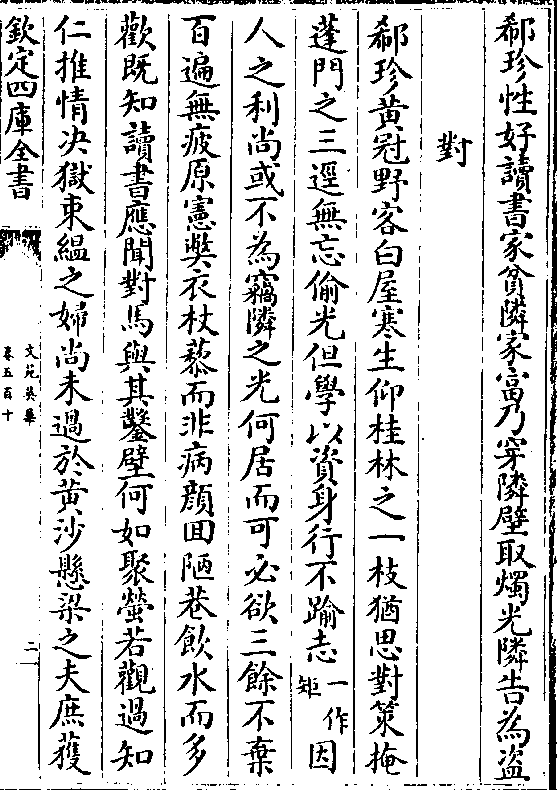 郗珍性好讀書家貧隣家富乃穿隣壁取燭光隣告為盜
對
郗珍黄冠野客白屋寒生仰桂林之一枝猶思對策掩
蓬門之三逕無忘偷光但學以資身行不踰志一作矩因
人之利尚或不為竊隣之光何居而可必欲三餘不棄
百遍無疲原憲獘衣杖藜而非病顔回陋巷飲水而多
歡既知讀書應聞對馬與其鑿壁何如聚螢若觀過知
仁推情决獄束緼之婦尚未過於黄沙懸梁之夫庶獲
欽定四庫全書
文苑英華
卷五百十
二